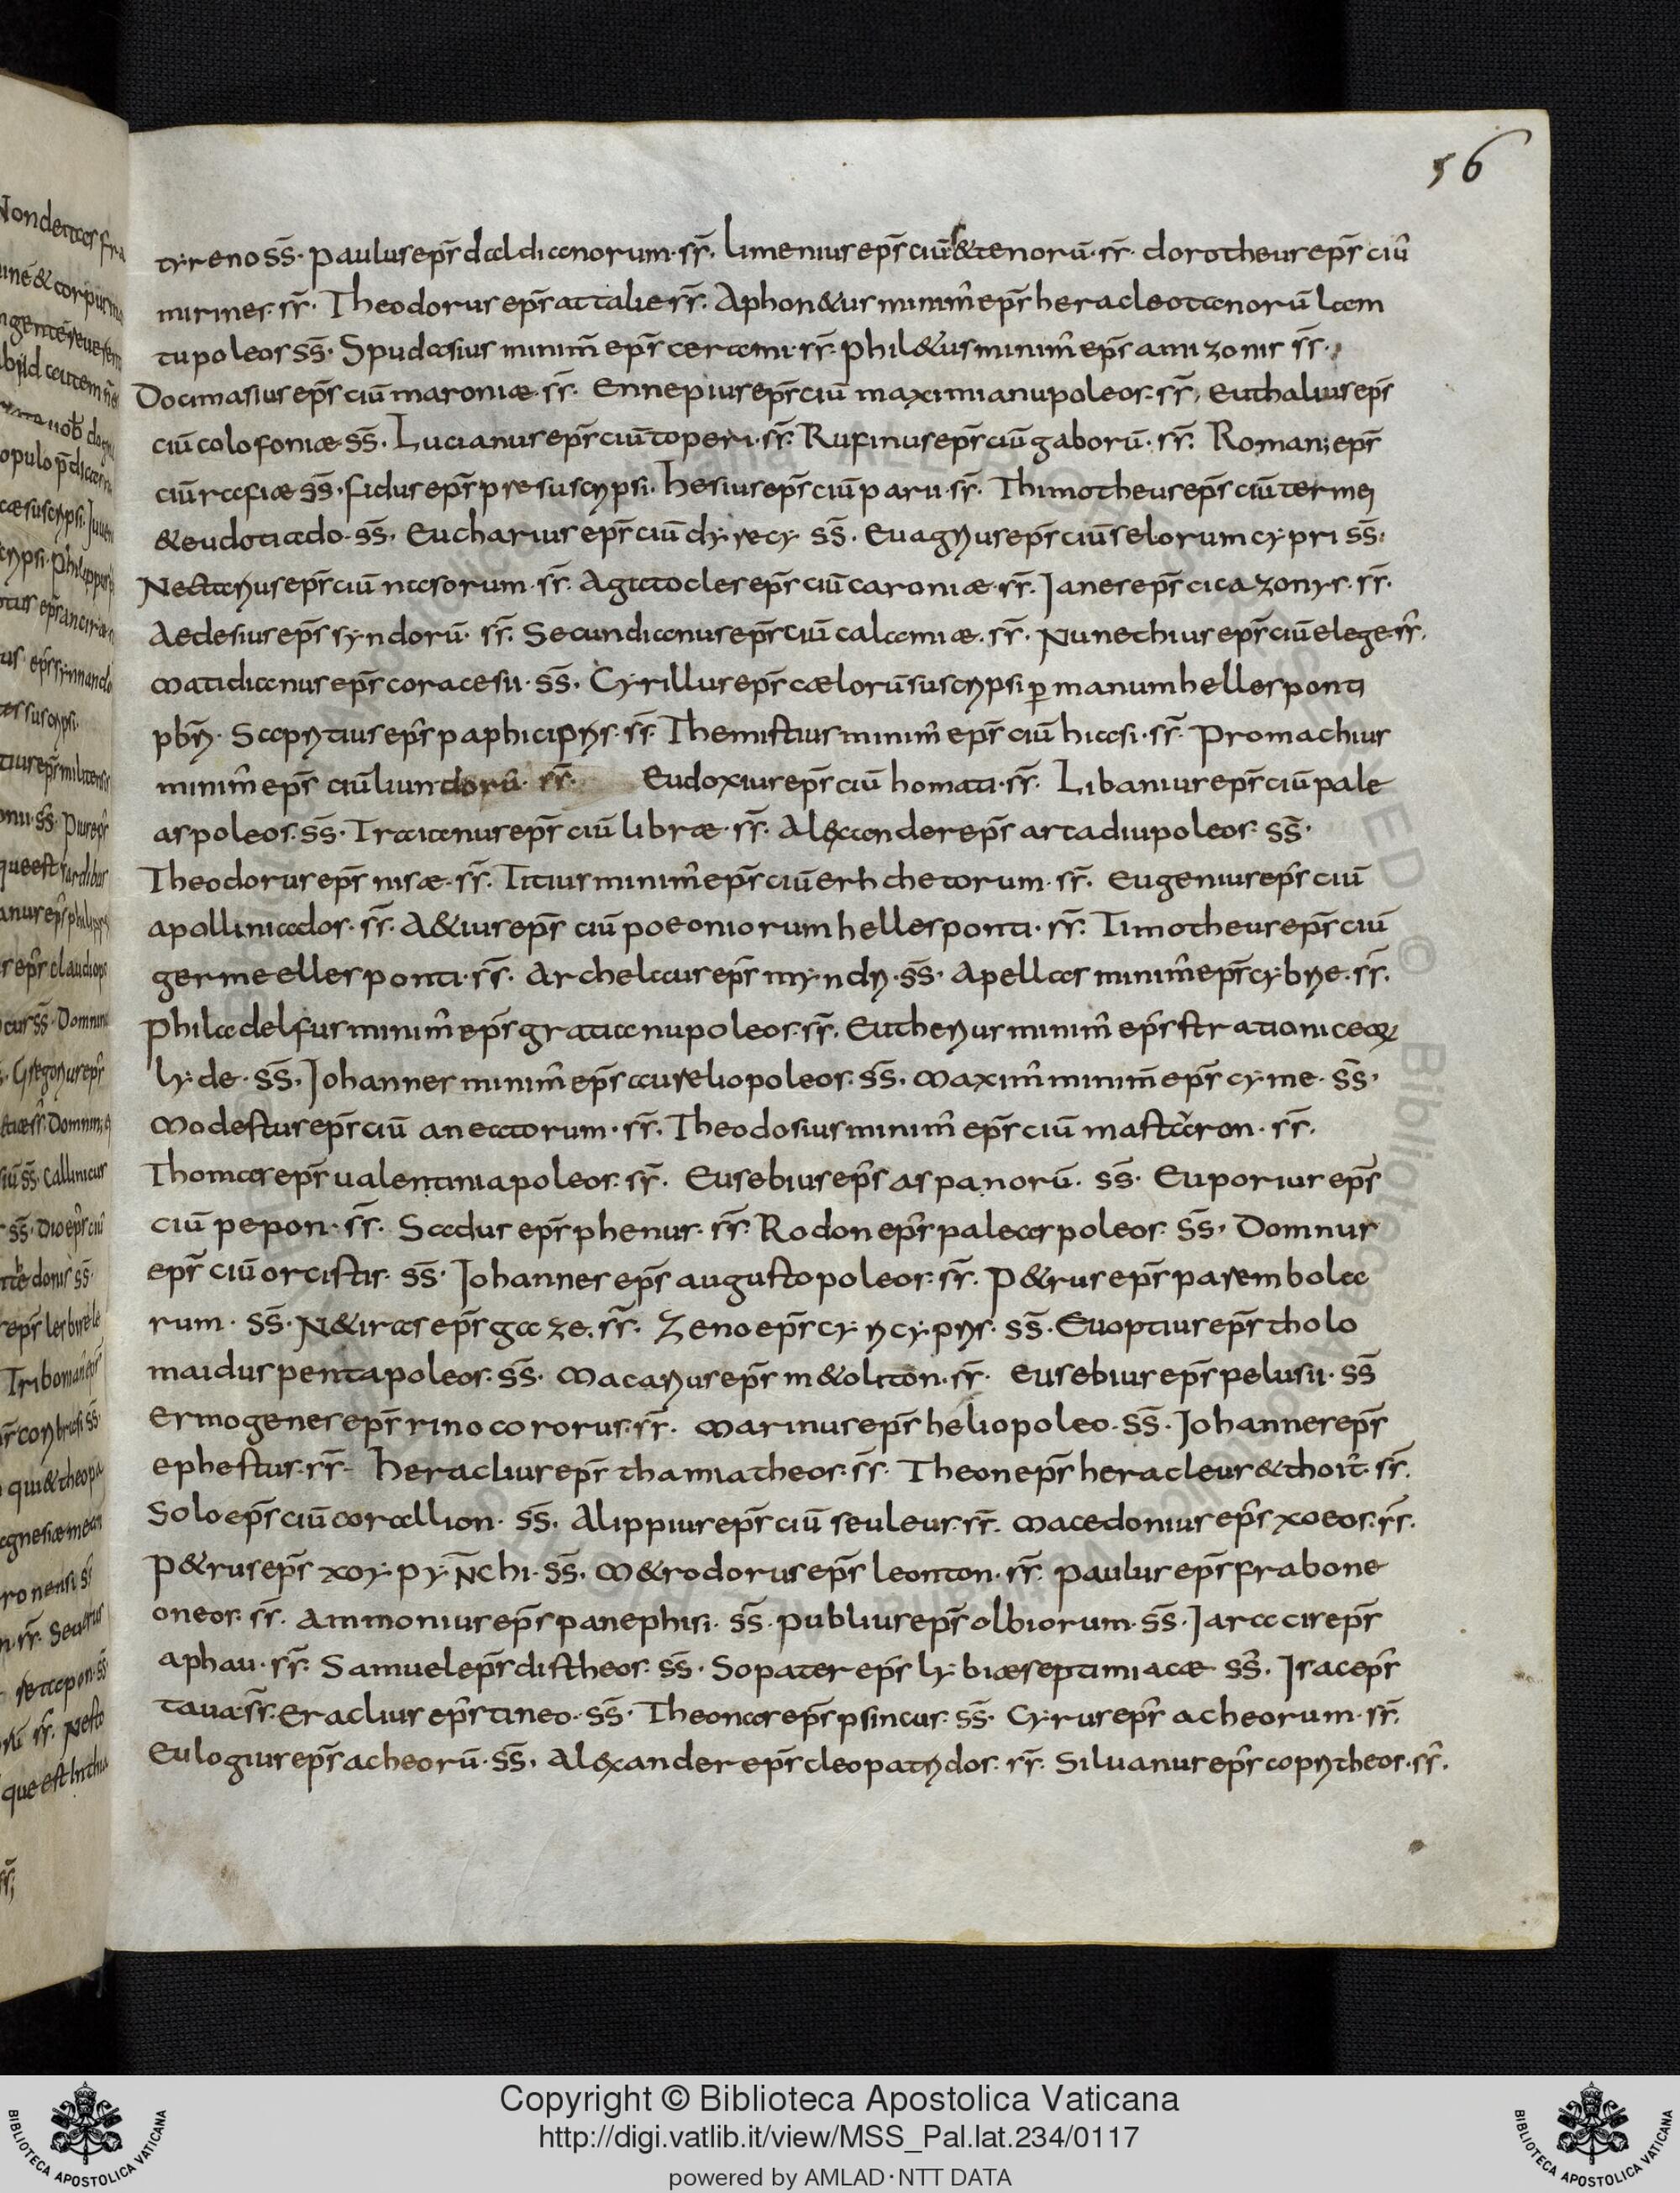 56
tyreno ss̄. paulus ep̄s daldianorum. ss̄. Limenius ep̄s ciū s&tenorū. ss̄. dorotheus ep̄s ciū
mirmes. ss̄. Theodorus ep̄s attalie ss̄. Aphon&us minim̄ ep̄s heracleotanorū lam
tupoleos ss̄. Spudasius minim̄ ep̄s cerami. ss̄. phil&us minim̄ ep̄s amizonis ss̄.
Docimasius ep̄s ciū maroniæ. ss̄. Ennepius ep̄s ciū maximianupoleos. ss̄. Euthalius ep̄s
ciū colofoniæ. ss̄. Lucianus ep̄s ciū toperi. ss̄. Rufinus ep̄s ciū gaborū. ss̄. Roman; ep̄s
ciū rafiæ ss̄. fidus ep̄s pre suscripsi. hesius ep̄s ciū parii. ss̄. Thimotheus ep̄s ciū termeri
&eudotiado. ss̄. Eucharius ep̄s ciū dyrecy. ss̄. Euagrius ep̄s ciū selorum cypri ss̄.
Nectarius ep̄s ciū nasorum. ss̄. Agatocles ep̄s ciū caroniæ. ss̄. Janes ep̄s cicazonys. ss̄.
Aedesius ep̄s syndorū. ss̄. Secundianus ep̄s ciū calamiæ. ss̄. Nunechius ep̄s ciū elege. ss̄.
Matidianus ep̄s coracesii. ss̄. Cyrillus ep̄s cælorū suscripsi p̱ manum hellesponti
pbr̄i. Sapritius ep̄s paphi cipris. ss̄. Themistius minim̄ ep̄s ciū hiasi. ss̄. Promachius
minim̄ ep̄s ciū liundorū. ss̄. Eudoxius ep̄s ciū homati. ss̄. Libanius ep̄s ciū pale
aspoleos. ss̄. Traianus ep̄s ciū libræ. ss̄. Alexander ep̄s artadiupoleos. ss̄.
Theodorus ep̄s nisæ. ss̄. Titius minim̄ ep̄s ciū erhchetorum. ss̄. Eugenius ep̄s ciū
apolliniados. ss̄. A&ius ep̄s ciū poeoniorum hellesponti. ss̄. Timotheus ep̄s ciū
germe ellesponti. ss̄. Archelaus ep̄s myndri. ss̄. Apellas minim̄ ep̄s cybrie. ss̄.
Philadelfus minim̄ ep̄s gratianupoleos. ss̄. Eutherius minim̄ ep̄s strationiceæ
lyde. ss̄. Johannes minim̄ ep̄s aureliopoleos. ss̄. Maxim̄ minim̄ ep̄s cyme. ss̄.
Modestus ep̄s ciū aneatorum. ss̄. Theodosius minim̄ ep̄s ciū mastaron. ss̄.
Thomas ep̄s ualentiniapoleos. ss̄. Eusebius ep̄s aspanorū. ss̄. Euporius ep̄s
ciū pepon. ss̄. Sadus ep̄s phenus. ss̄. Rodon ep̄s paleaspoleos. ss̄. Domnus
ep̄s ciū orcistis. ss̄. Johannes ep̄s augustopoleos. ss̄. P&rus ep̄s parembola
rum. ss̄. N&iras ep̄s gaze. ss̄. Zeno ep̄s cyricypris. ss̄. Euoptius ep̄s tholo
maidus pentapoleos. ss̄. Macarius ep̄s m&oliton. ss̄. Eusebius ep̄s pelusii. ss̄
Ermogenes ep̄s rinocororus. ss̄. Marinus ep̄s heliopoleo. ss̄. Johannes ep̄s
ephestus. ss̄. heraclius ep̄s thamiatheos. ss̄. Theon ep̄s heracleus &thoit̄. ss̄.
Solo ep̄s ciū corallion. ss̄. Alippius ep̄s ciū seuleus. ss̄. Macedonius ep̄s xoeos. ss̄.
P&rus ep̄s xoypyn̄chi. ss̄. M&rodorus ep̄s leonton. ss̄. paulus ep̄s frabone
oneos. ss̄. Ammonius ep̄s panephisi. ss̄. publius ep̄s olbiorum. ss̄. Jaracis ep̄s
aphau. ss̄. Samuel ep̄s distheos. ss̄. Sopater ep̄s lybiæ septimiacæ ss̄. Jsac ep̄s
tauæ. ss̄. eraclius ep̄s tineo. ss̄. Theonas ep̄s psincus. ss̄. Cyrus ep̄s acheorum. ss̄.
Eulogius ep̄s acheorū. ss̄. Alexander ep̄s cleopatridos. ss̄. Siluanus ep̄s copritheos. ss̄.
Copyright © Biblioteca Apostolica Vaticana
http://digi.vatlib.it/view/MSS_Pal.lat.234/0117
powered by AMLAD·NTT DATA
BIBLIOTECA APOSTOLICA VATICANA
BIBLIOTECA APOSTOLICA VATICANA